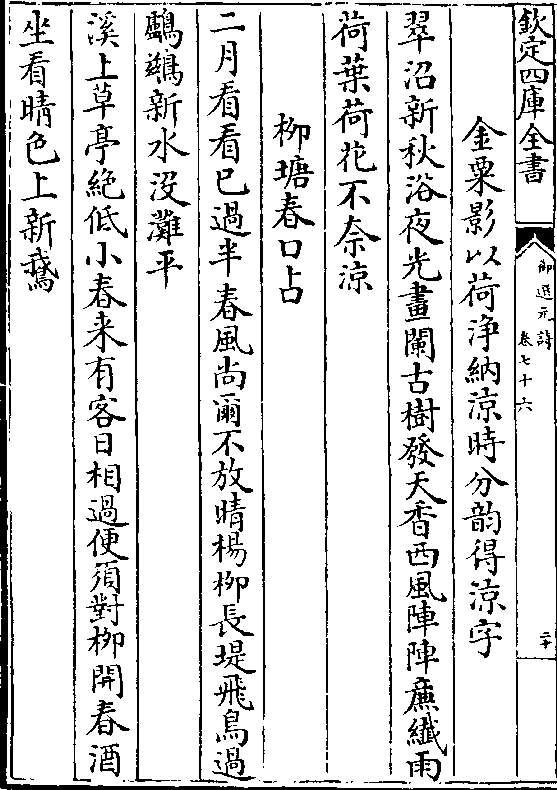 欽定四庫全書
御選元詩
卷七十六
二十
金粟影以荷浄納涼時分韵得涼字
翠沼新秋浴夜光畫闌古樹發天香西風陣陣㢘纎雨
荷葉荷花不奈涼
柳塘春口占
二月看看已過半春風尚爾不放晴楊柳長堤飛鳥過
鸕鷀新水没灘平
溪上草亭絶低小春来有客日相過便須對柳開春酒
坐看晴色上新鵞